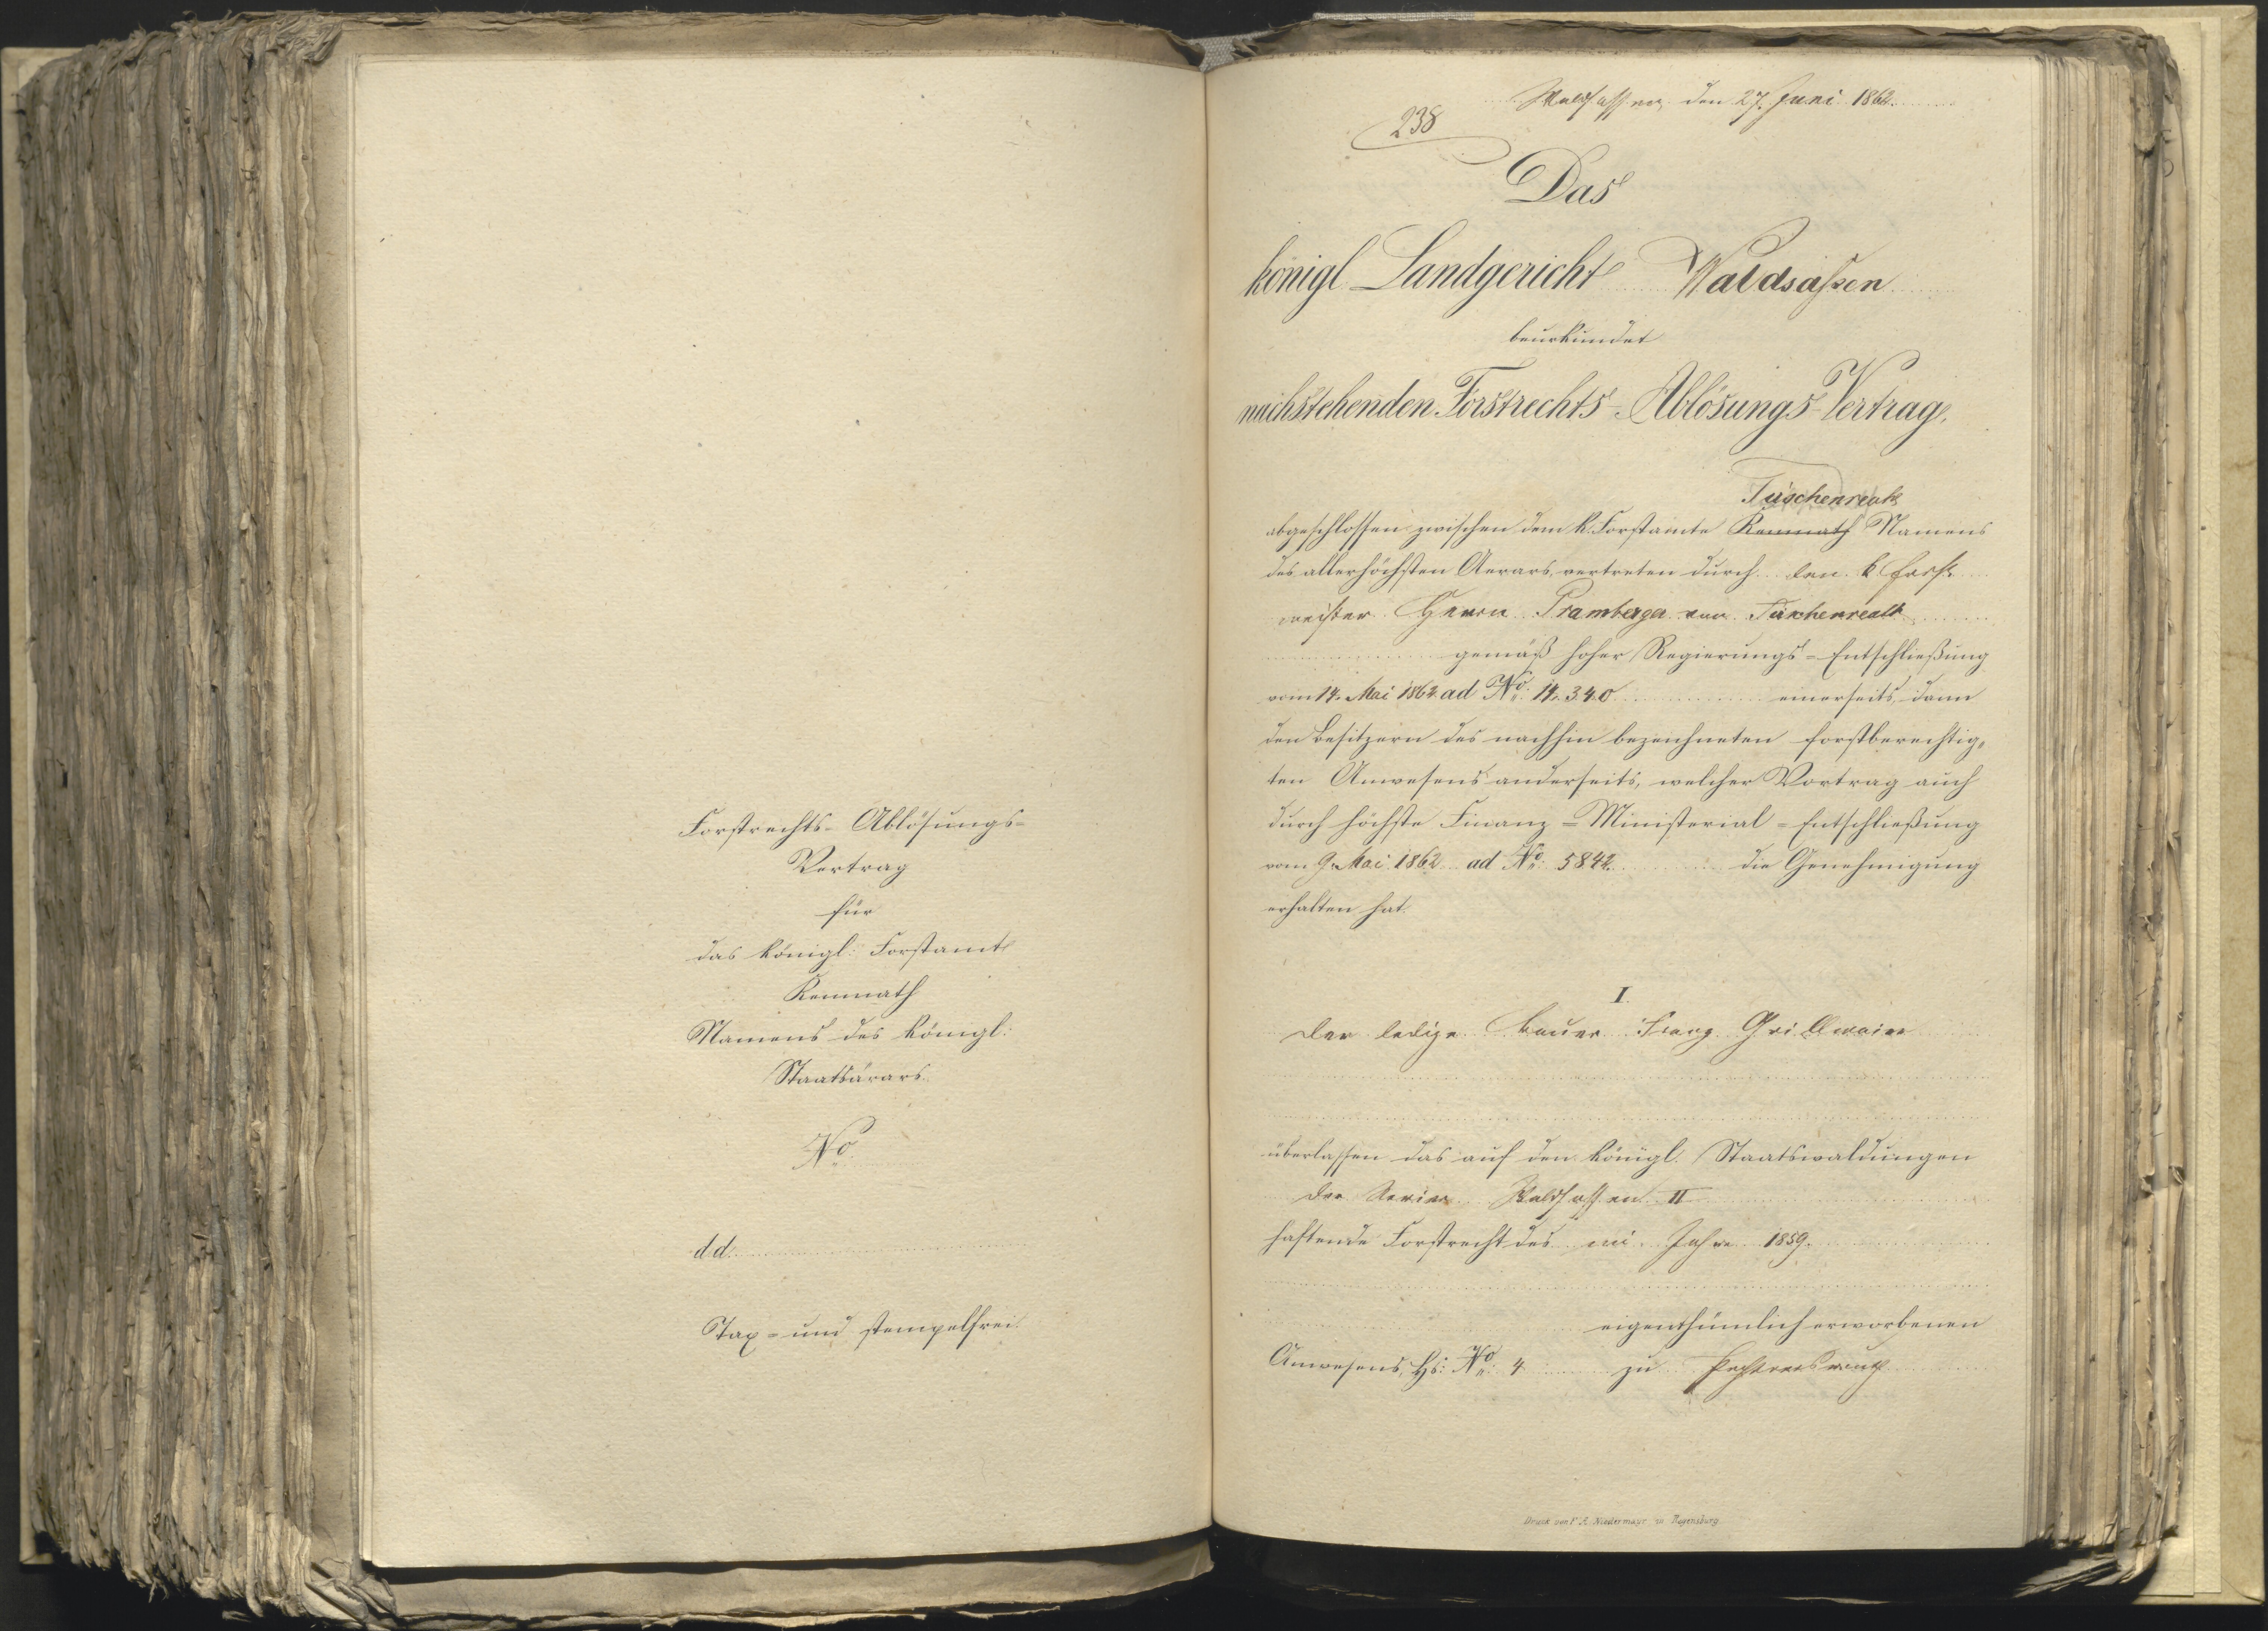 Forstrechts-Ablösungs-
Vertrag
für
das königl: Forstamt
Kemnath
Namens des königl:
Staatsärars.
No.
dd.
Tax- und stempelfrei.
Waldsassen, den 27. Juni 1862.
238
Das
königl Landgericht Waldsassen
beurkundet
nachstehenden Forstrechts-Ablösungs-Vertrag,
Tirschenreuth
abgeschlossen zwischen dem k. Forstamte Kemnath Namens
des allerhöchsten Aerars, vertreten durch den k. Forst-
meister Herrn Pramberger von Tirschenreuth
gemäß hoher Regierungs-Entschließung
vom 14. Mai 1862 ad No. 14.340 einerseits, dann
den Besitzern des nachhin bezeichneten forstberechtig-
ten Anwesens anderseits, welcher Vertrag auch
durch höchste Finanz-Ministerial-Entschließung
vom 9. Mai 1862 ad No. 5842 die Genehmigung
erhalten hat.
I.
Der ledige Bauer Franz Grillmaier
überlassen das auf den königl. Staatswaldungen
der Revier Waldsassen II
haftende Forstrecht des im Jahre 1859.
eigenthümlich erworbenen
Anwesens, Hs: No. 4 zu
Druck von F. A. Niedermayr in Regensburg